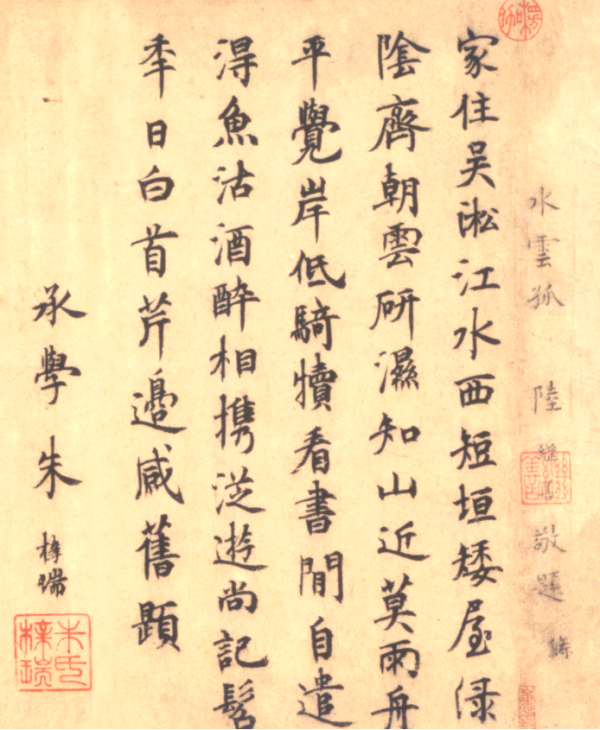 水雲孤 陸繼善敬題
家住吳淞江水西短垣矮屋淥
陰齊朝雲研濕知山近莫雨舟
平覺岸低騎犢看書閒自遣
淂魚沽酒醉相携從遊尚記髫
秊日白首芹邊感舊題
承學朱